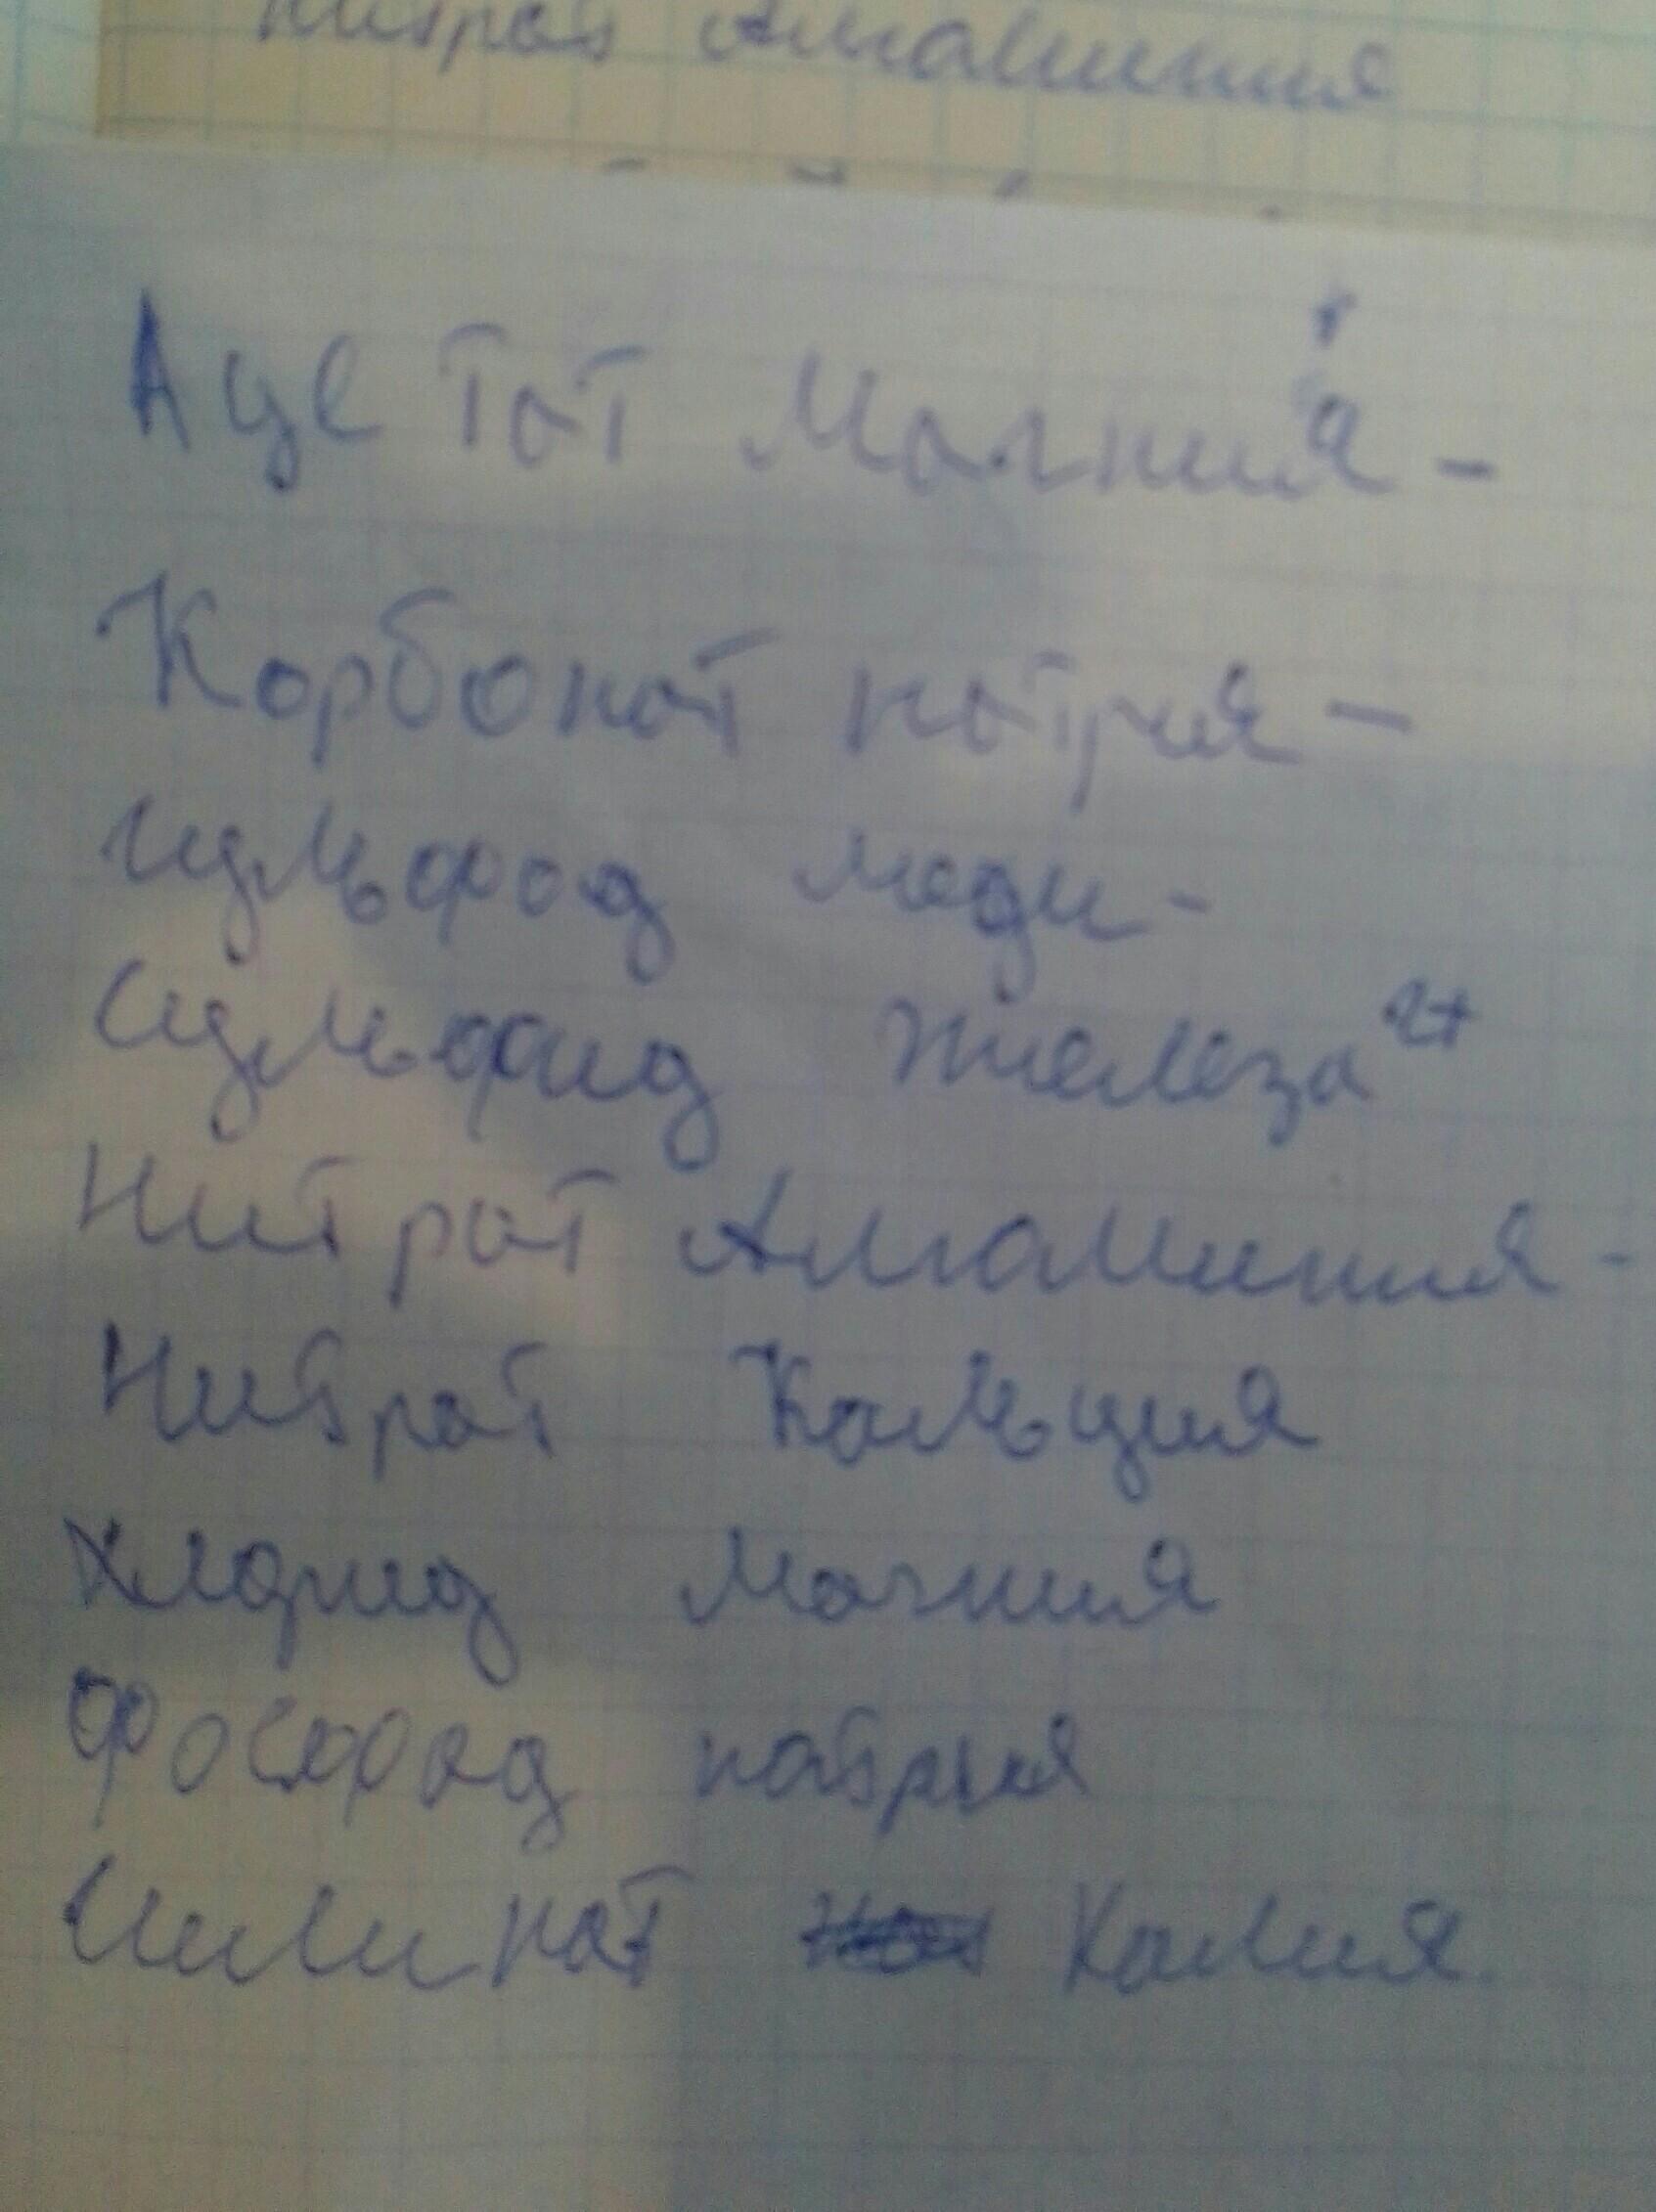 Нитрат Алюминия
Ацетат Магния -
Корбонат натрия -
Сульфод меди -
Сульфид железа 2+
Нитрат Алюминия -
Нитрат Кальция
Хлорид Магния
Фосфод натрия
Силикат Калия